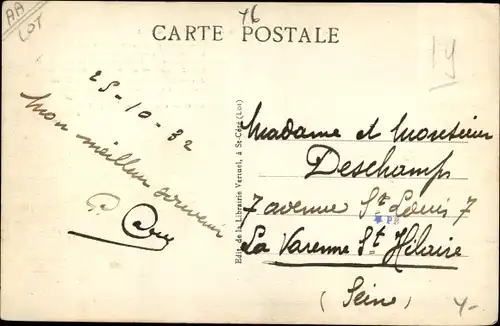 AA
LOT
46
CARTE POSTALE
25-10-32
Mon meilleur souvenir
Edit. de la Librairie Vertuel, à St-Céré (Lot)
Madame et Monsieur
Deschamps
7 avenue St Louis 7
La Varenne St Hilaire
(Seine)